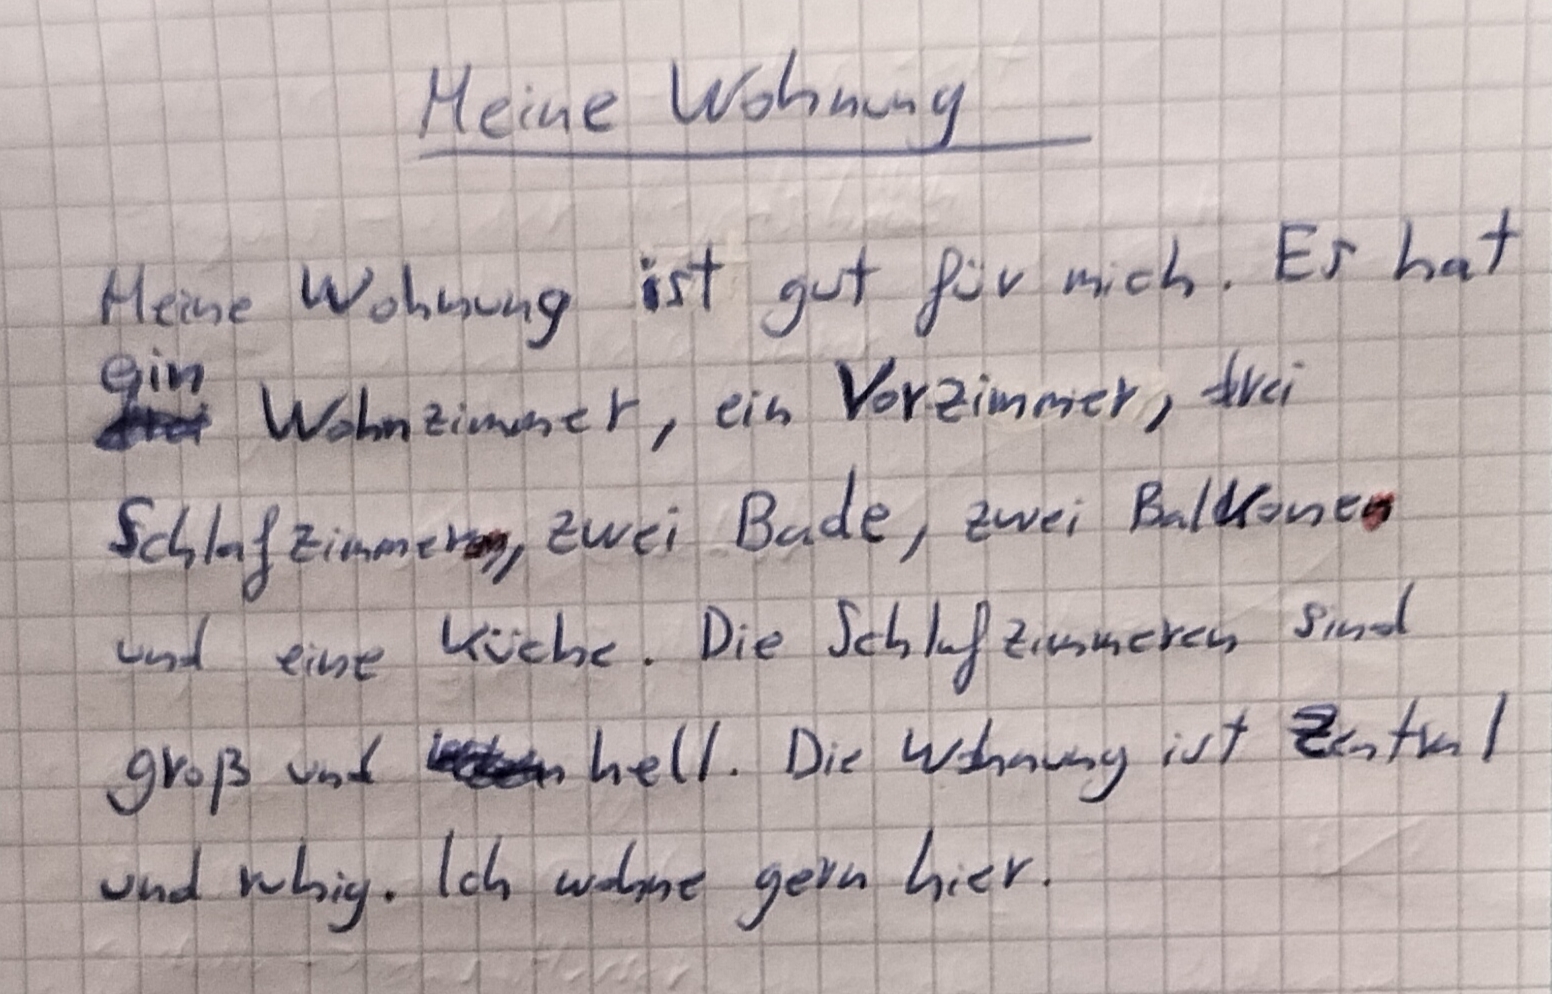 Meine Wohnung
Meine Wohnung ist gut für mich. Es hat
ein Wohnzimmer, ein Vorzimmer, drei
Schlafzimmer, zwei Bade, zwei Balkone
und eine Küche. Die Schlafzimmeren sind
groß und hell. Die Wohnung ist Zentral
und ruhig. Ich wohne gern hier.